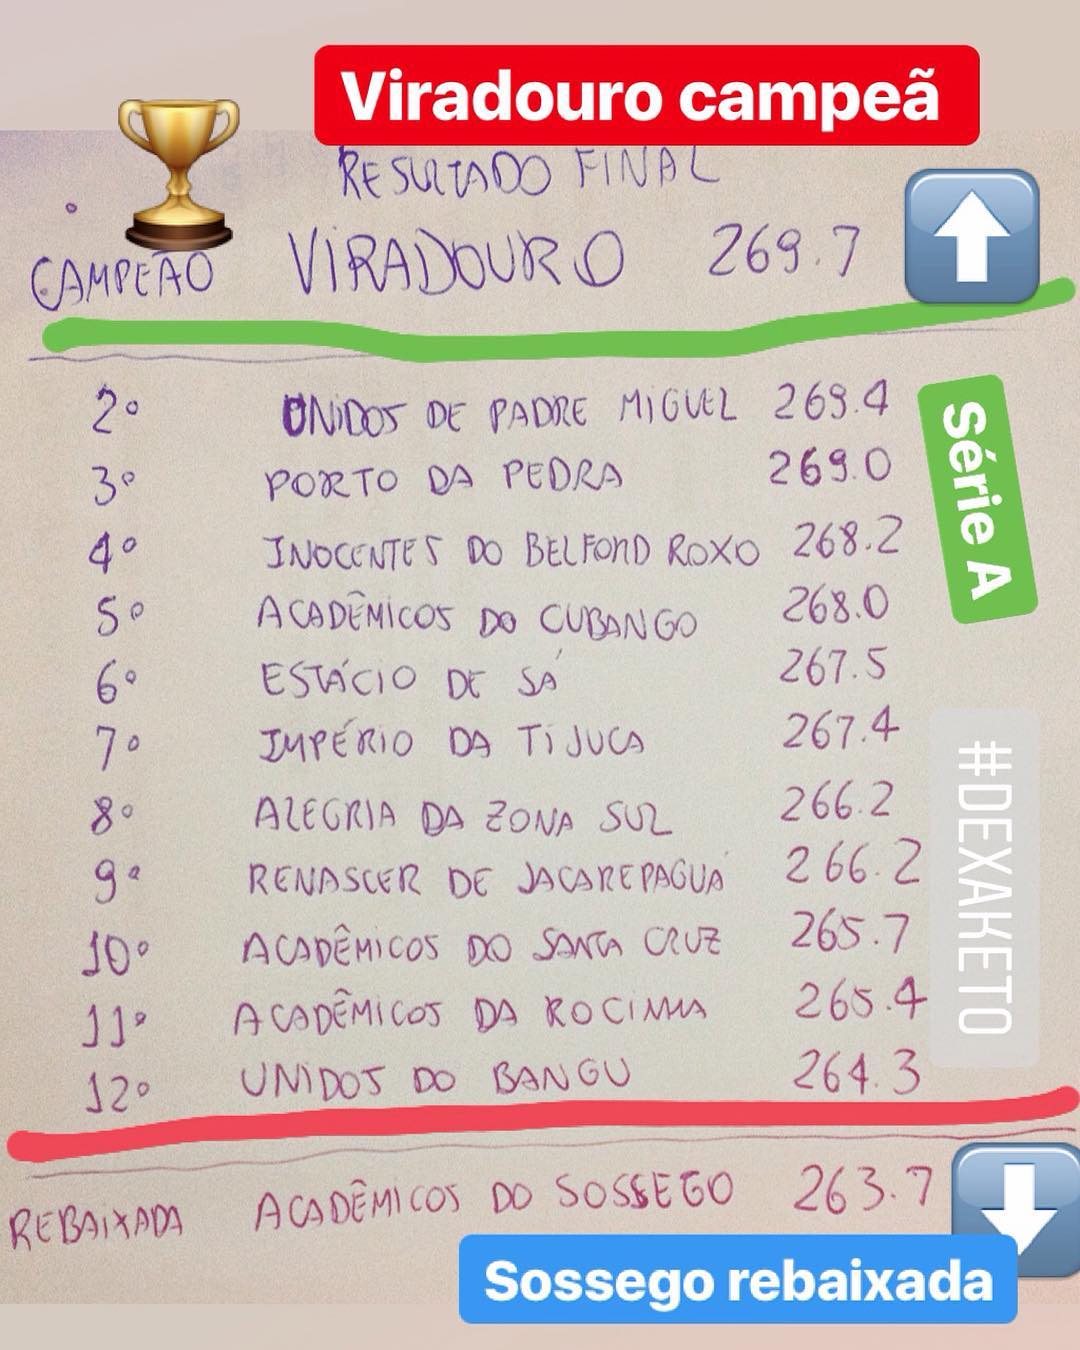 Viradouro campeã
RESULTADO FINAL
CAMPEÃO VIRADOURO 269.7
2º UNIDOS DE PADRE MIGUEL 269.4
3º PORTO DA PEDRA 269.0
4º INOCENTES DO BELFORD ROXO 268.2
5º ACADÊMICOS DO CUBANGO 268.0
6º ESTÁCIO DE SÁ 267.5
7º IMPÉRIO DA TIJUCA 267.4
8º ALEGRIA DA ZONA SUL 266.2
9ª RENASCER DE JACAREPAGUÁ 266.2
10º ACADÊMICOS DO SANTA CRUZ 265.7
11º ACADÊMICOS DA ROCINHA 265.4
12º UNIDOS DO BANGU 264.3
REBAIXADA ACADÊMICOS DO SOSSEGO 263.7
Sossego rebaixada
Série A
#DEXAKETO